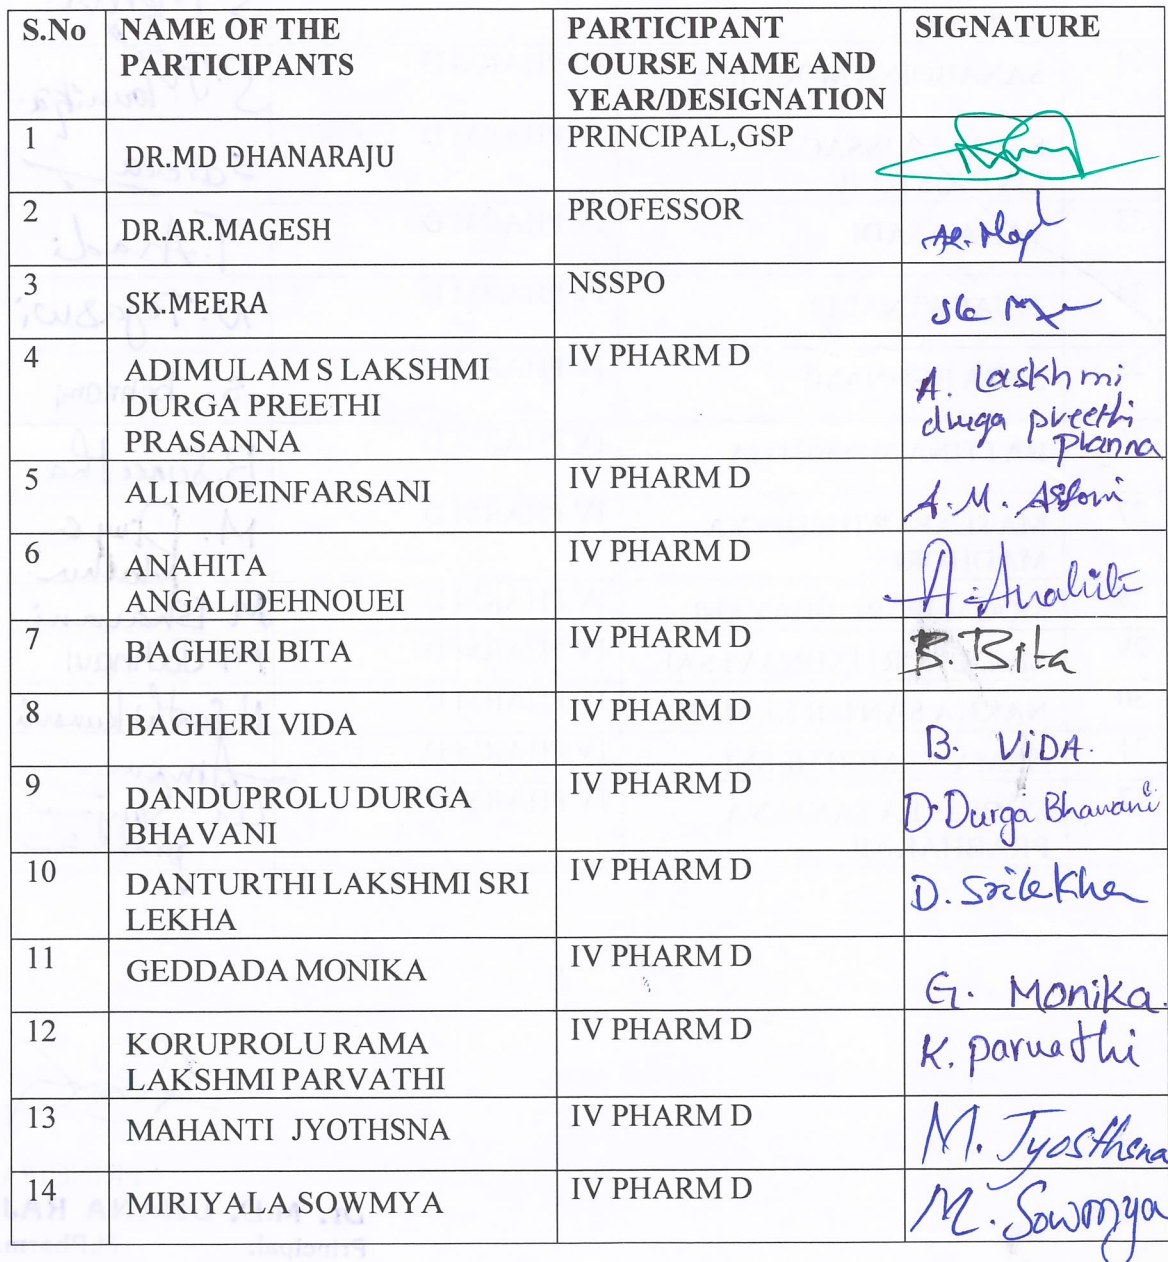 S.No NAME OF THE PARTICIPANTS PARTICIPANT COURSE NAME AND YEAR/DESIGNATION SIGNATURE
1 DR.MD DHANARAJU PRINCIPAL,GSP
2 DR.AR.MAGESH PROFESSOR AR.
3 SK.MEERA NSSPO SK
4 ADIMULAM S LAKSHMI DURGA PREETHI PRASANNA IV PHARM D A. Laskhmi durga preethi
5 ALI MOEINFARSANI IV PHARM D A.M.
6 ANAHITA ANGALIDEHNOUEI IV PHARM D A. Anahita
7 BAGHERI BITA IV PHARM D B. Bita
8 BAGHERI VIDA IV PHARM D B. VIDA.
9 DANDUPROLU DURGA BHAVANI IV PHARM D D. Durga Bhavani
10 DANTURTHI LAKSHMI SRI LEKHA IV PHARM D D. Srilekha
11 GEDDADA MONIKA IV PHARM D G. Monika.
12 KORUPROLU RAMA LAKSHMI PARVATHI IV PHARM D K. parvathi
13 MAHANTI JYOTHSNA IV PHARM D M. Jyosthsna
14 MIRIYALA SOWMYA IV PHARM D M. Sowmya